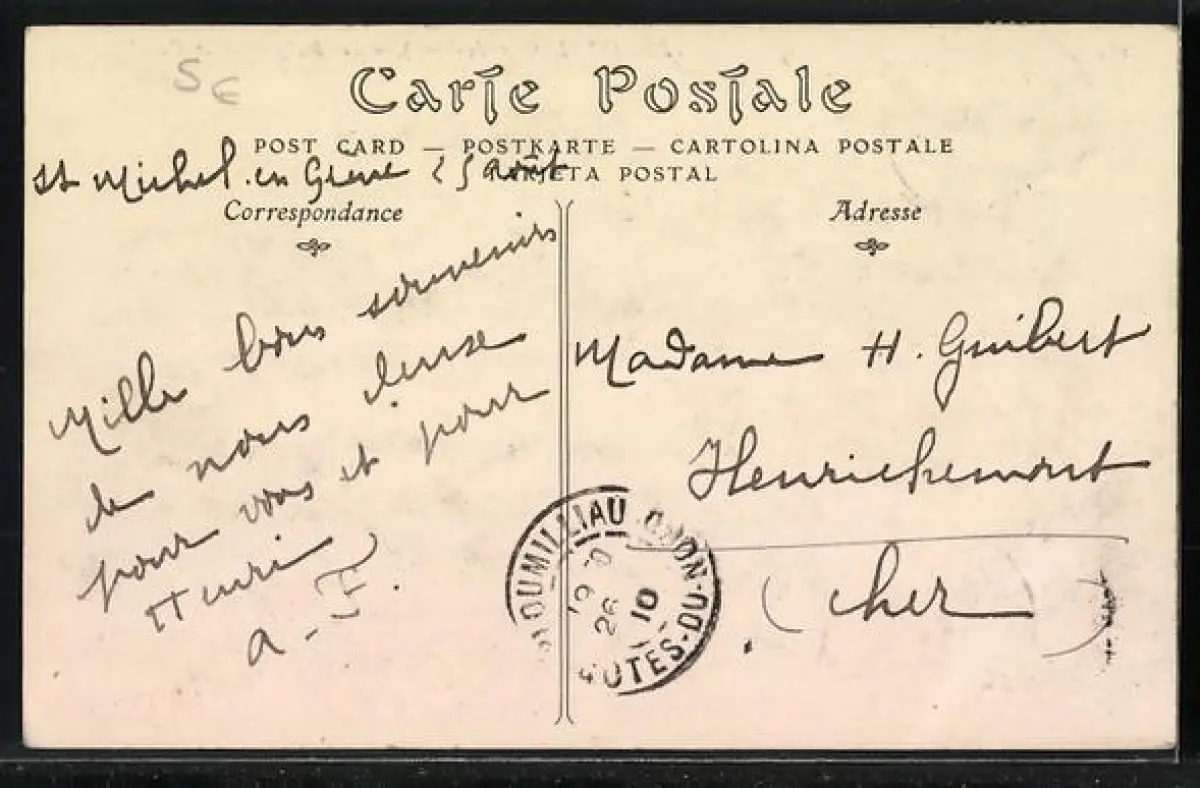 5 €
Carte Postale
POST CARD — POSTKARTE — CARTOLINA POSTALE
TARJETA POSTAL
St Michel-en-Grève 25 août
Correspondance
Mille bons souvenirs
de nous deux
pour vous et pour
Henri
a-F.
Adresse
Madame H. Guibert
Henrichemont
(Cher)
PLOUMILLIAU
COTES-DU-NORD
26
10